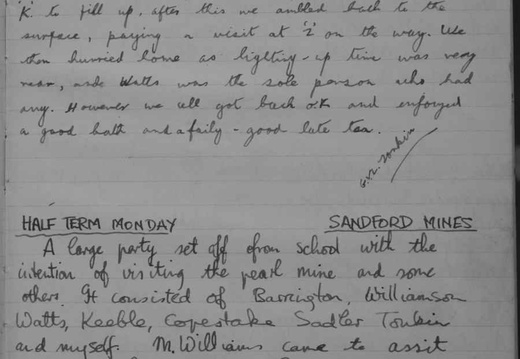 K. to fill up. after this we ambled back to the
surface, paying a visit at '2' on the way. We
then hurried home as lighting-up time was very
near, and Watts was the sole person who had
any. However we all got back o.k. and enjoyed
a good bath and a faily-good late tea.
Tonkin
HALF TERM MONDAY SANDFORD MINES
A large party set off from school with the
intention of visiting the pearl mine and some
others. It consisted of Barrington, Williamson
Watts, Keeble, Copestake Sadler Tonkin
and myself. M. Williams came to assit